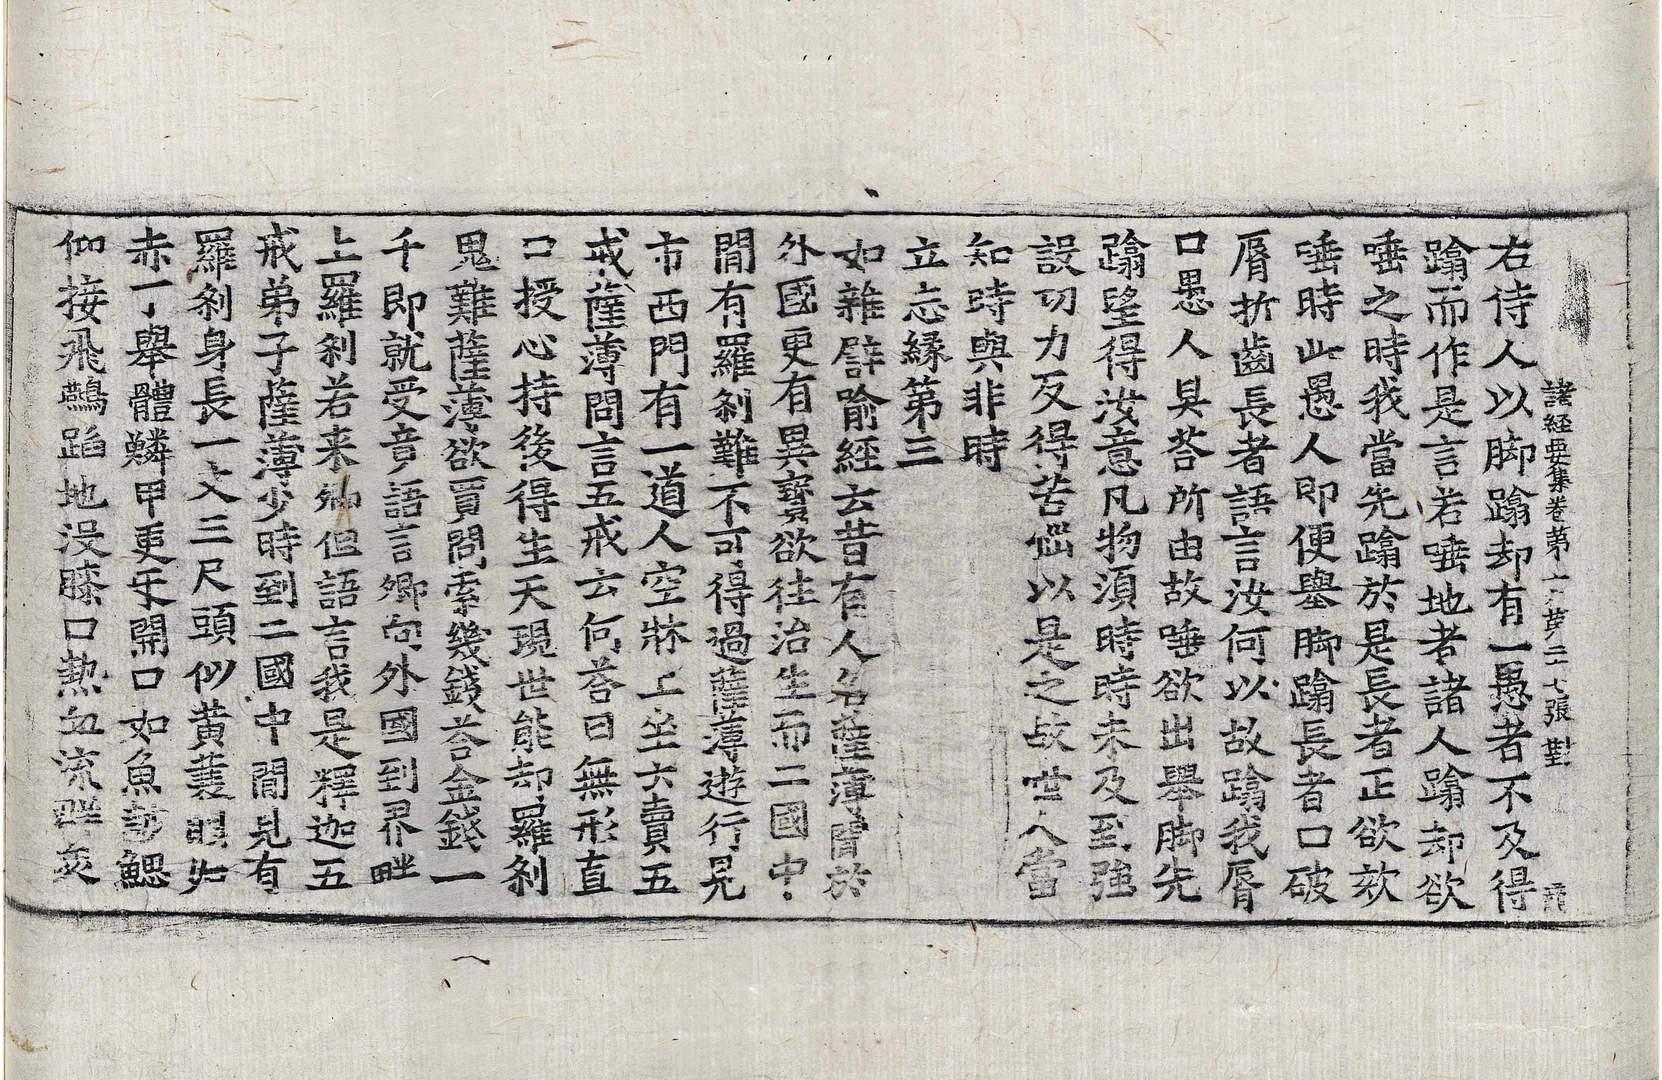 諸經要集卷第六 第二十七張 對
右侍人以脚蹹却有一愚者不及得
蹹而作是言若唾地者諸人蹹却欲
唾之時我當先蹹於是長者正欲欬
唾時此愚人即便舉脚蹹長者口破
脣折齒長者語言汝何以故蹹我脣
口愚人具荅所由故唾欲出舉脚先
蹹望得汝意凡物須時時未及到強
設功力反得苦惱以是之故世人當
知時與非時
立志緣第三
如雜譬喻經云昔有人名薩薄聞於
外國更有異寶欲往治生而二國中
間有羅刹難不可得過薩薄遊行見
市西門有一道人空牀上坐云賣五
戒薩薄問言五戒云何荅曰無形直
口授心持後得生天現世能却羅刹
鬼難薩薄欲買問索幾錢荅金錢一
千即就受竟語言卿向外國到界畔
上羅刹若来卿但語言我是釋迦五
戒弟子薩薄少時到二國中間見有
羅刹身長一丈三尺頭似黄蓑眼如
赤丁舉體鱗甲更牙開口如魚鼓鰓
仰接飛鷰蹈地没膝口熱血流群衆